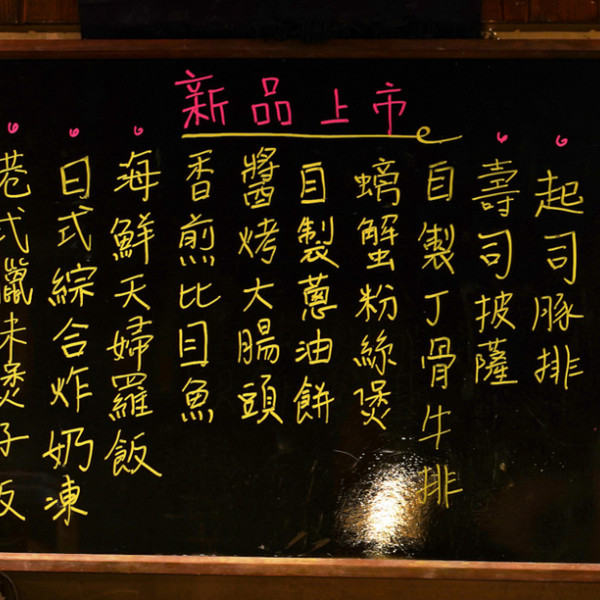 新品上市
起司豚排
壽司披薩
自製丁骨牛排
螃蟹粉絲煲
自製蔥油餅
醬烤大腸頭
香煎比目魚
海鮮天婦羅飯
日式綜合炸奶凍
港式臘味煲仔飯